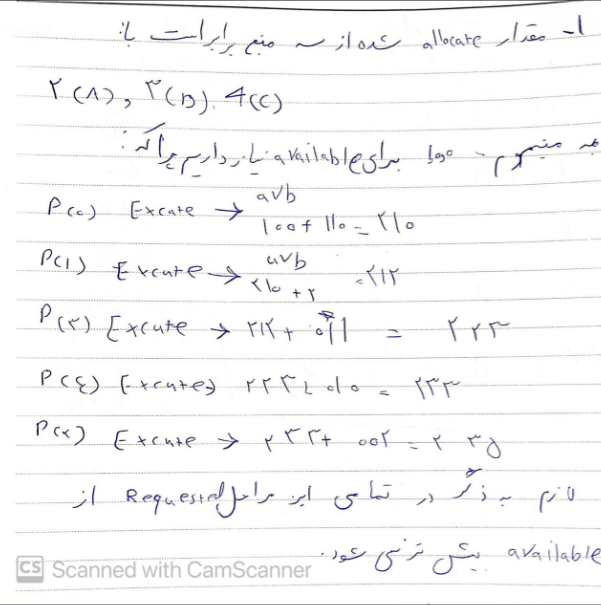 ۱- مقدار allocate شده از سه منبع برابر است با:
۲(A), ۳(B). 4(C)
به مینیمم ۱۰۰ برای available نیاز داریم چرا که:
P(۰) Excute → avb ۱۰۰+ ۱۱۰ = ۲۱۰
P(۱) Excute → avb ۲۱۰ + ۲ = ۲۱۲
P(۳) Excute → ۲۱۲+ ۰۱۱ = ۲۲۳
P(٤) Excute → ۲۲۳+ ۰۱۰ = ۲۳۳
P(۲) Excute → ۲۳۳+ ۰۰۲ = ۲۳۵
لازم به ذکر در تمامی این مراحل Requested از
available بیش تر نمی شود.
CS Scanned with CamScanner